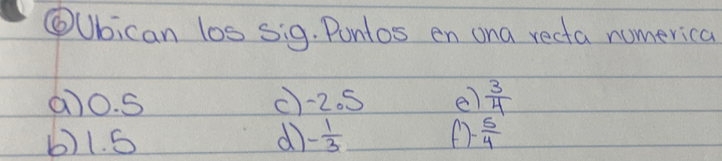 ⑥ Ubican los sig. Puntos en una recta numerica
a) 0.5 c) -2.5 e) 3/4
b) 1.5 d) -1/3 f) -5/4